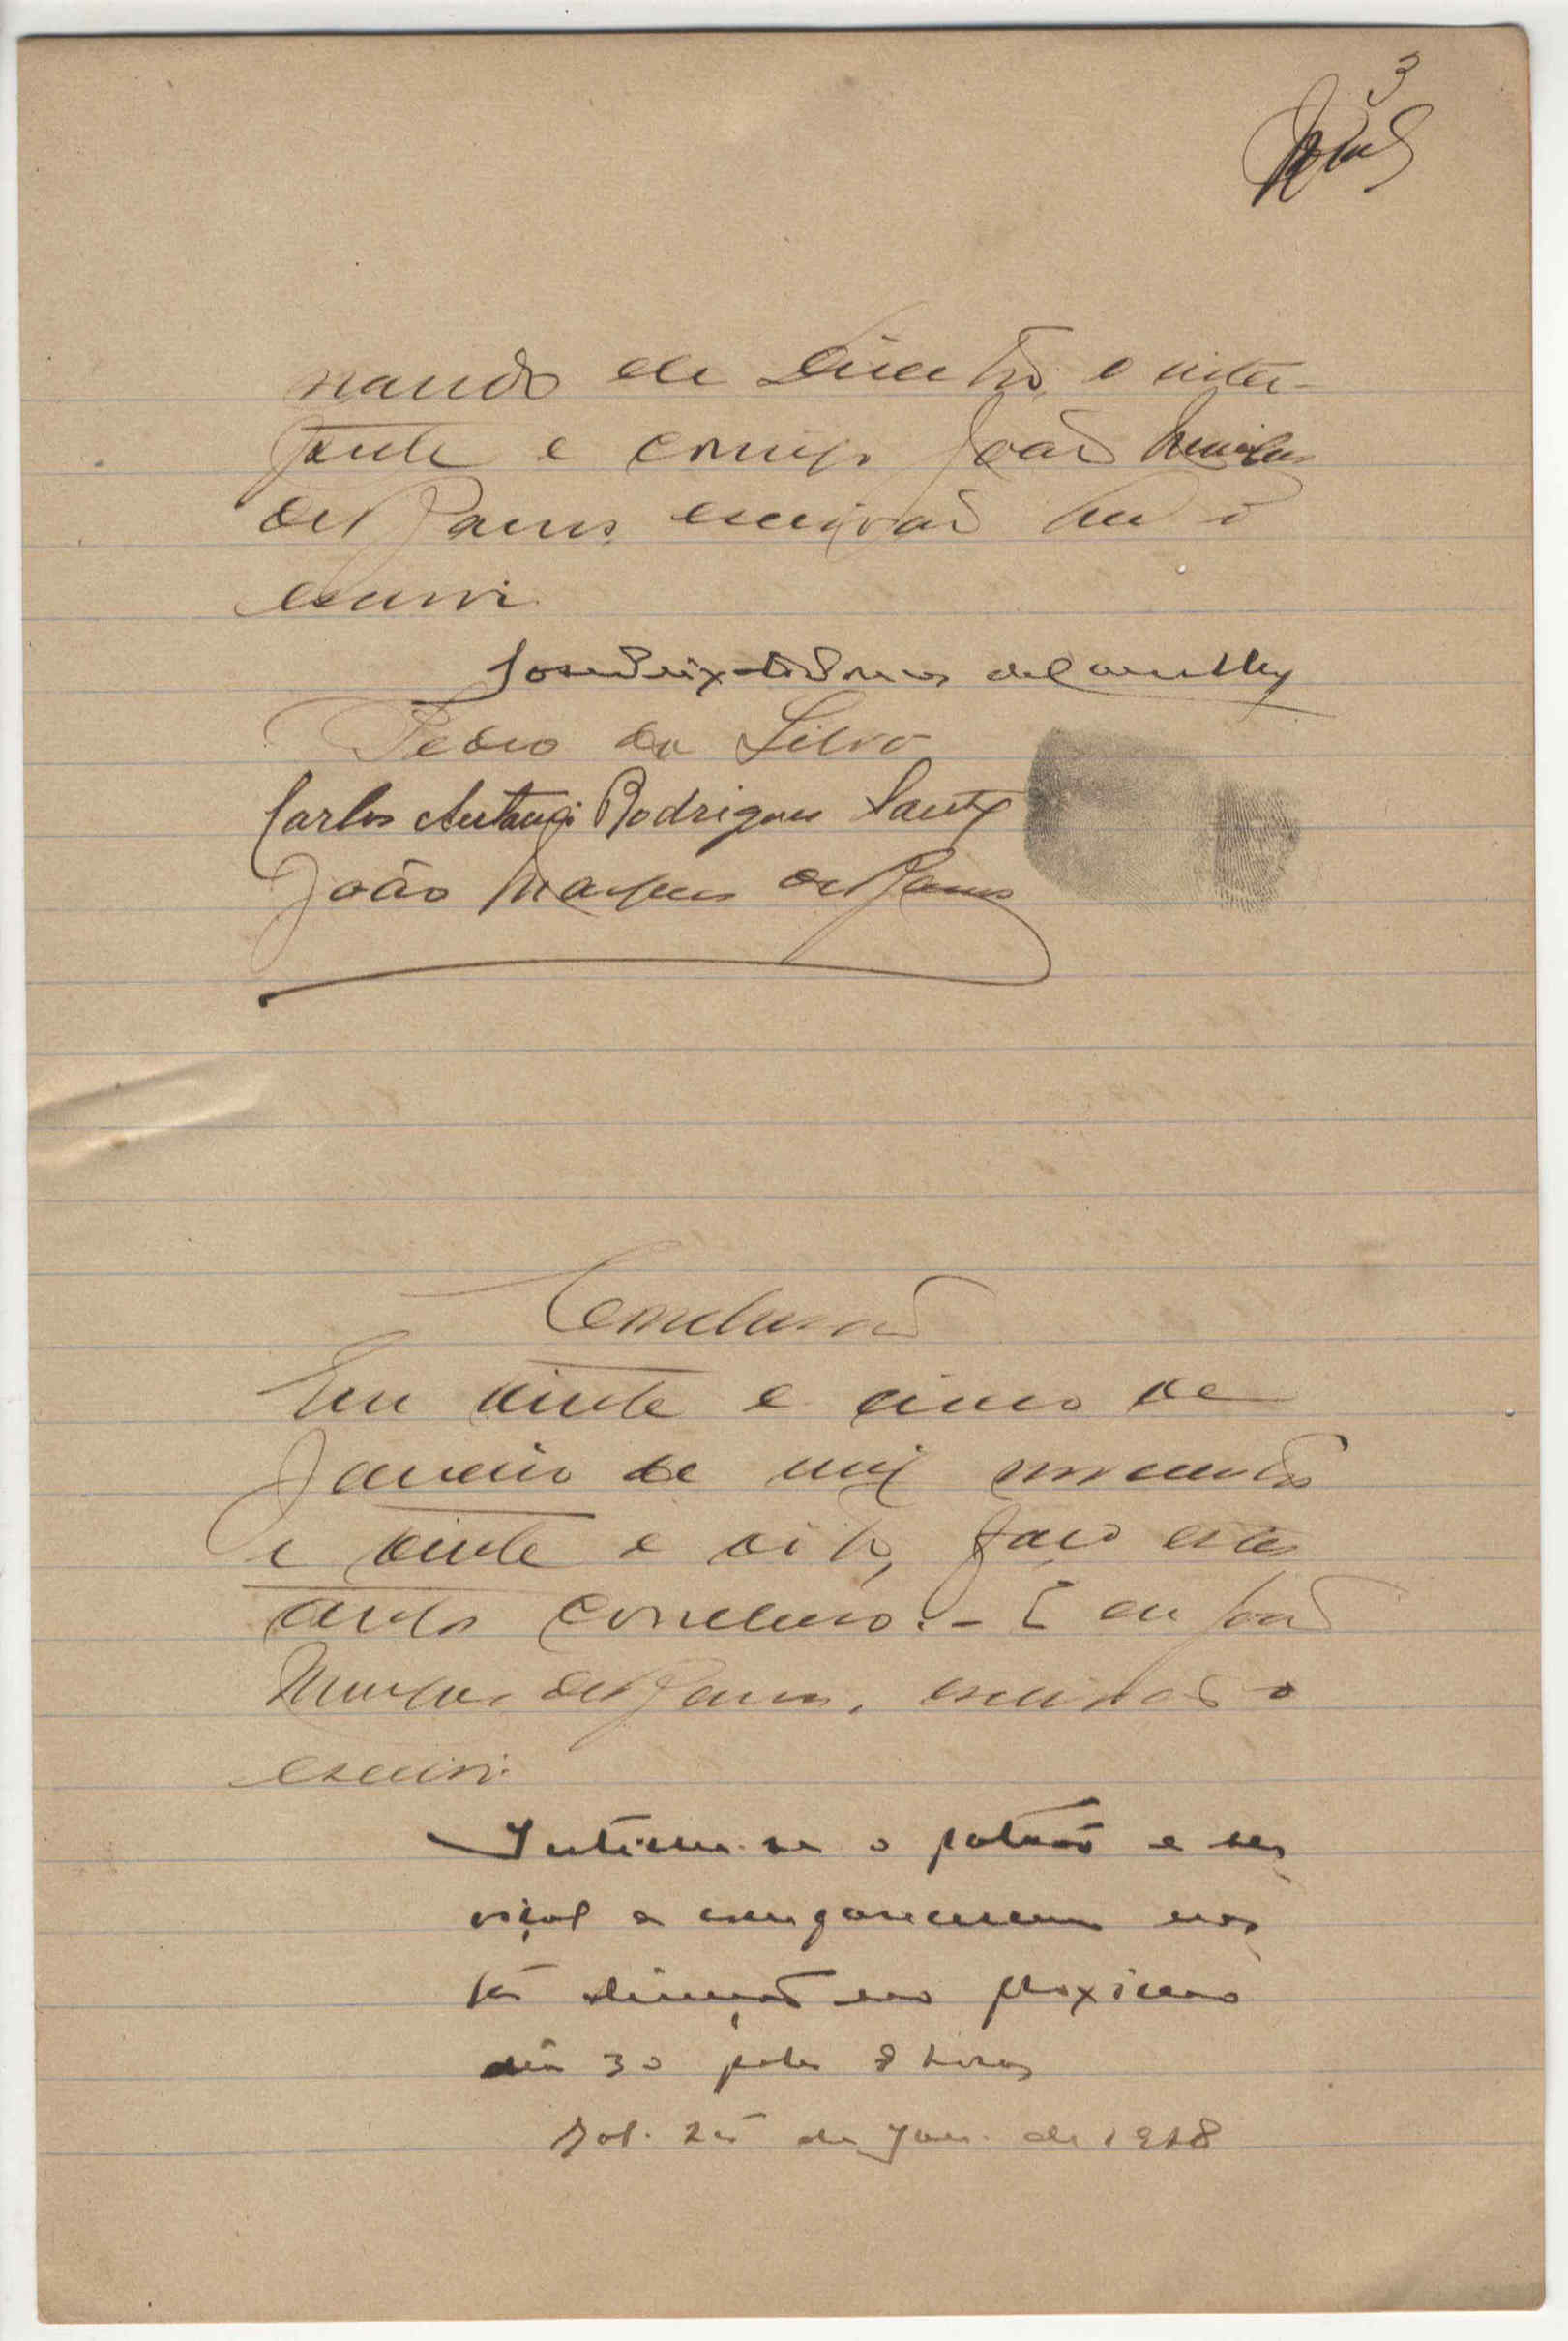 3
nando de Director, o inter-
prete e comigo João Marques
de Ramos escrivão que o
escrevi.
José Peixoto de
Pedro da Silva
Carlos Antonio Rodrigues Santos
João Marques de Ramos
Conclusão
Em vinte e cinco de
Janeiro de mil novecentos
e vinte e oito, faço estes
autos conclusos.- E eu João
Marques de Ramos, escrivão o
escrevi.
Intime-se o patrão e ser
viçal a comparecerem nes
ta direcção no proximo
dia 30 pelas 8 horas
25 de Jan. de 1928